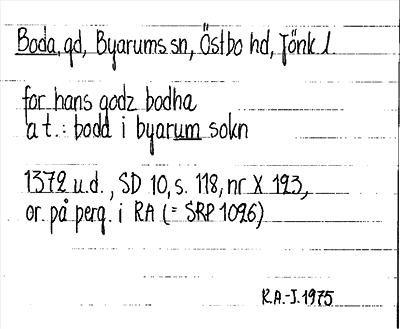 Boda, gd, Byarums sn, Östbo hd, Jönk l
for hans godz bodha
a t.: bodd i byarum sokn
1372 u.d., SD 10, s. 118, nr X 123,
or. på perg. i RA (= SRP 1096)
R.A.-J. 1975